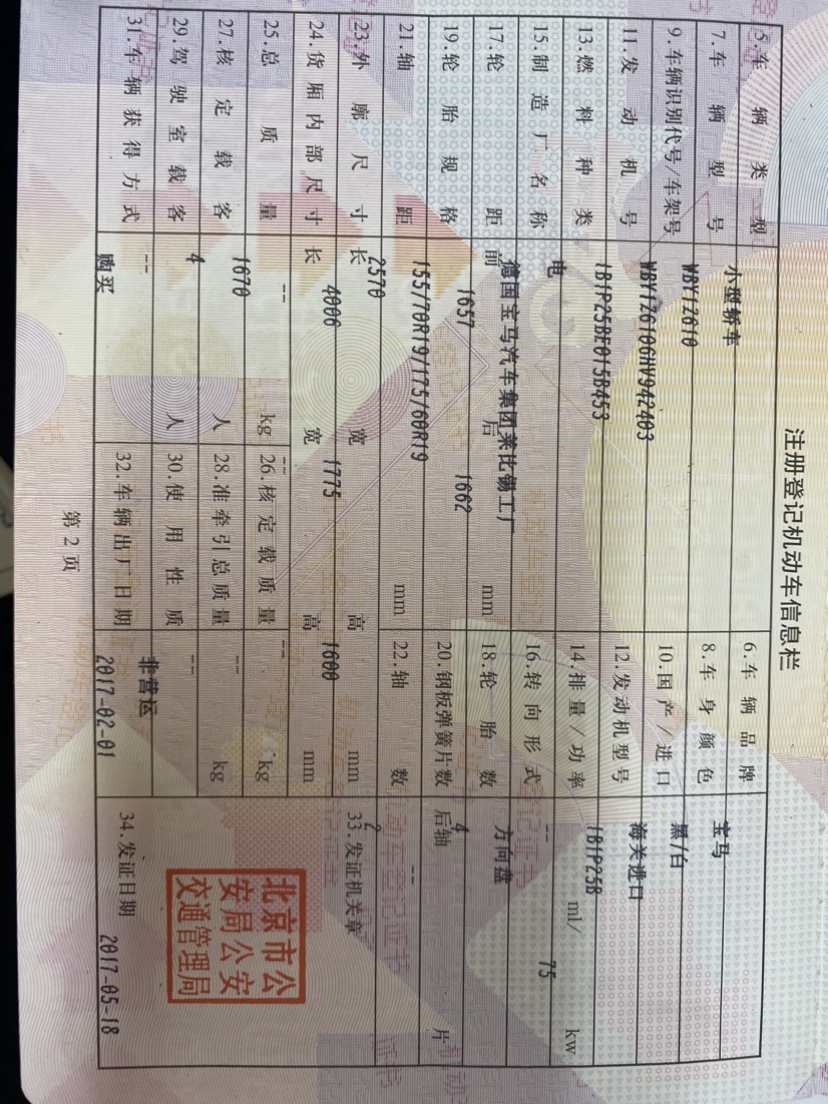 注册登记机动车信息栏
5.车辆类型 小型轿车 6.车辆品牌 宝马
7.车辆型号 WBY1Z610 8.车身颜色 黑/白
9.车辆识别代号/车架号 WBY1Z6106HV942403 10.国产/进口 海关进口
11.发动机号 IB1P25BE015B453 12.发动机型号 IB1P25B
13.燃料种类 电 14.排量/功率 -- ml/ 75 kw
15.制造厂名称 德国宝马汽车集团莱比锡工厂 16.转向形式 方向盘
17.轮距 前 1657 后 1662 mm 18.轮胎数 4
19.轮胎规格 155/70R19/175/60R19 20.钢板弹簧片数 后轴 -- 片
21.轴距 2570 mm 22.轴数 2
23.外廓尺寸 长 4006 宽 1775 高 1600 mm 33.发证机关章
24.货厢内部尺寸 长 -- 宽 -- 高 -- mm
25.总质量 1670 kg 26.核定载质量 -- kg
27.核定载客 4 人 28.准牵引总质量 -- kg
29.驾驶室载客 -- 人 30.使用性质 非营运
北京市公
安局公安
交通管理局
31.车辆获得方式 购买 32.车辆出厂日期 2017-02-01 34.发证日期 2017-05-18
第2页